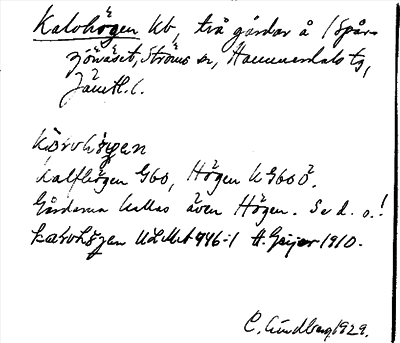 Kalvhögen Kb, två gårdar å (Spår-
sjönäset, Ströms sn, Hammerdals tg,
Jämtl. l.
kɑ̀rvhö̀gen
Kalfhögen G60, Högen KG60Ö.
Gårdarna kallas även Högen. Se d. o.!
karvhögen ULMA 446:1 H. Geijer 1910.
C. Lundberg 1929.